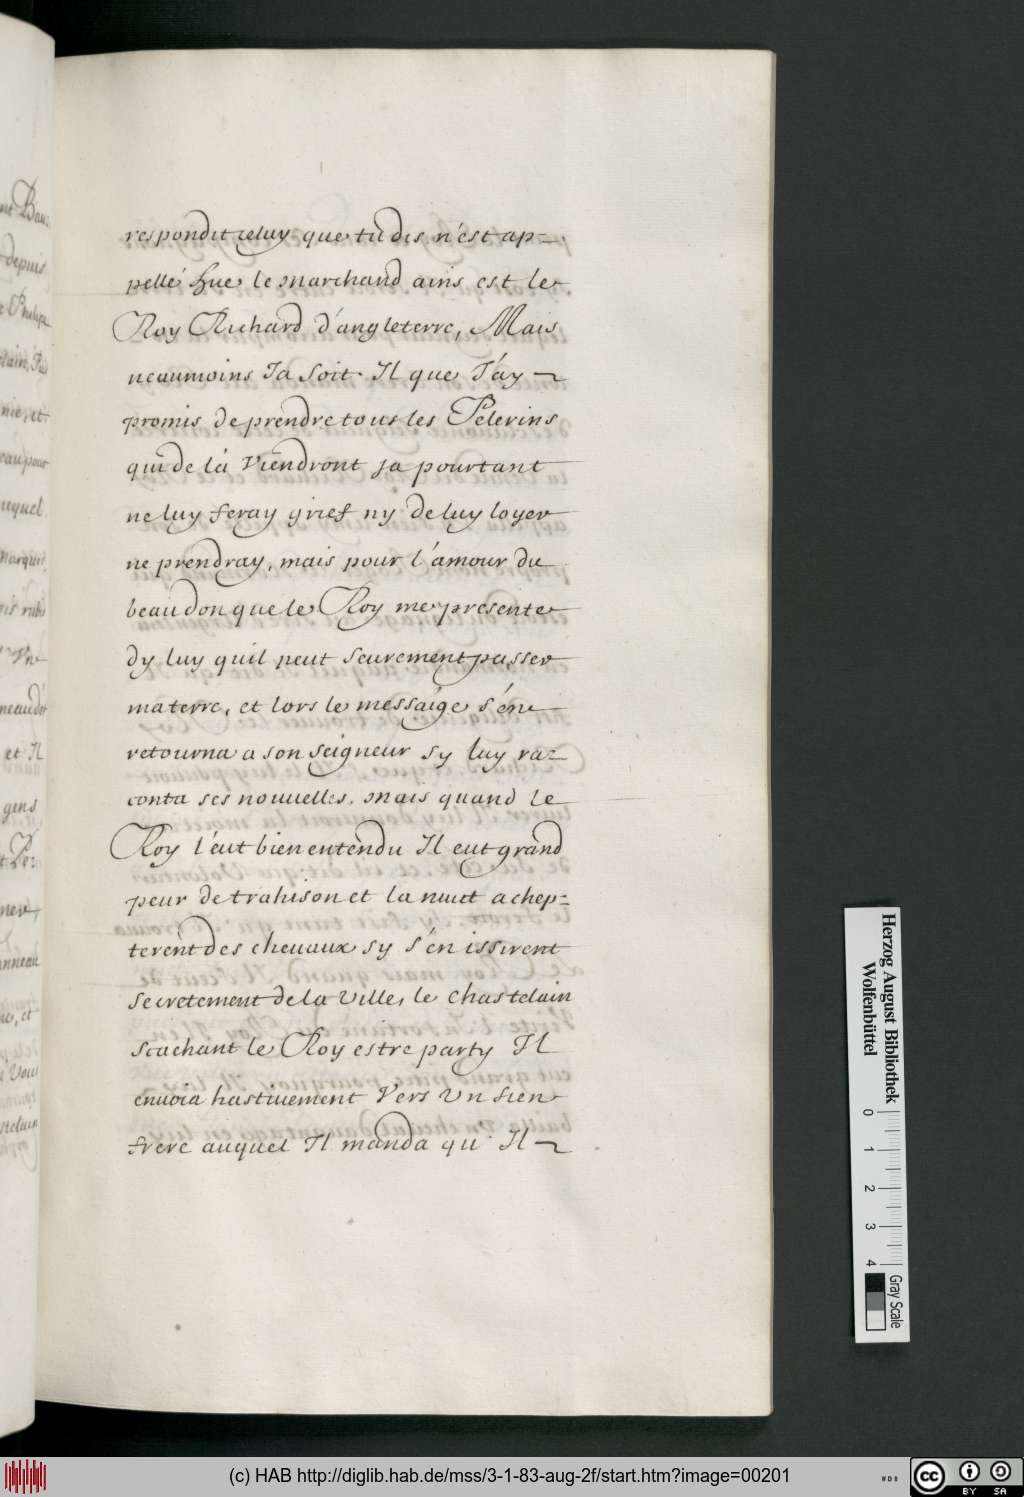 respondit celuy que tu dis n'est ap=
pellé hue le marchand ains est le
Roy Richard d'angleterre, Mais
neaumoins Ja soit Il que J'ay
promis de prendre tous les Pelerins
qui de là viendront ja pourtant
ne luy feray grief ny de luy loyer
ne prendray, mais pour l'amour du
beau don que le Roy me presente
dy luy quil peut seurement passer
ma terre, et lors le messaige s'en
retourna a son seigneur sy luy ra=
conta ses nouuelles. mais quand le
Roy l'eut bien entendu Il eut grand
peur de trahison et la nuit achep=
terent des cheuaux sy s'en issirent
secretement de la ville, le chastelain
scachant le Roy estre party Il
enuoia hastiuement vers vn sien
frere auquel Il manda qu'Il
Bau
depuis
Philipe
nie, et
lequel
et Il
gens
anneau
Herzog August Bibliothek
Wolfenbüttel
0 1 2 3 4
Gray Scale
(c) HAB http://diglib.hab.de/mss/3-1-83-aug-2f/start.htm?image=00201
cc BY SA